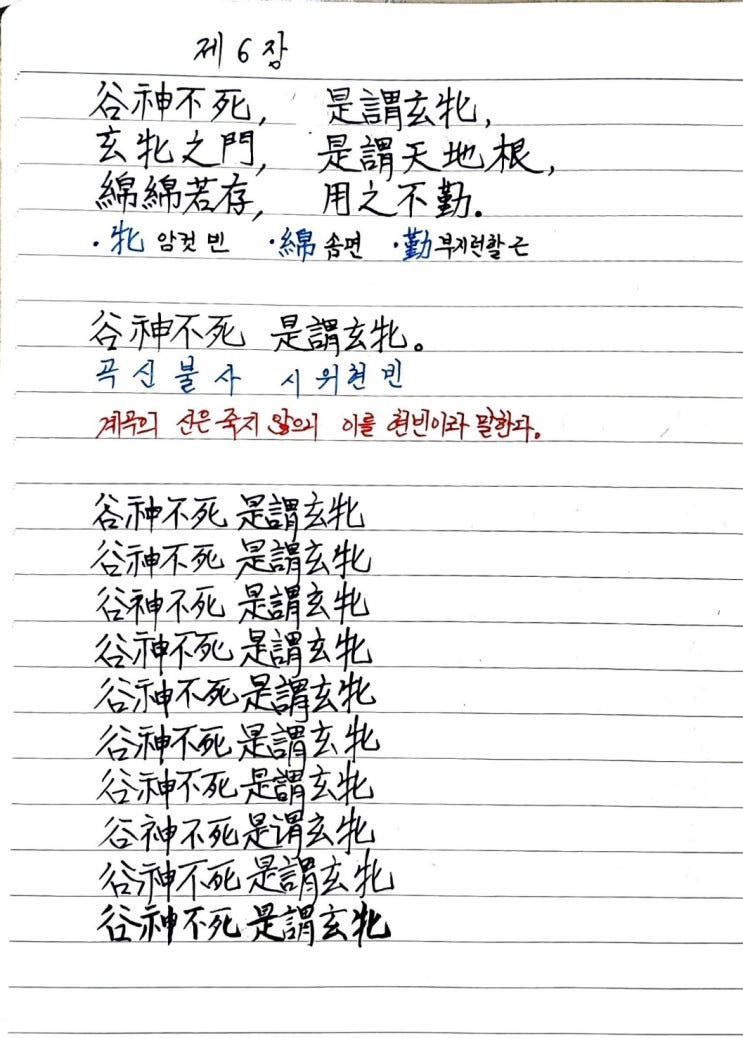 제 6 장
谷神不死, 是謂玄牝,
玄牝之門, 是謂天地根,
綿綿若存, 用之不勤.
·牝 암컷 빈 ·綿 솜면 ·勤 부지런할 근
谷神不死 是謂玄牝。
곡 신 불 사 시 위 현 빈
계곡의 신은 죽지 않으니 이를 현빈이라 말한다.
谷神不死 是謂玄牝
谷神不死 是謂玄牝
谷神不死 是謂玄牝
谷神不死 是謂玄牝
谷神不死 是謂玄牝
谷神不死 是謂玄牝
谷神不死 是謂玄牝
谷神不死 是谓玄牝
谷神不死 是謂玄牝
谷神不死 是謂玄牝